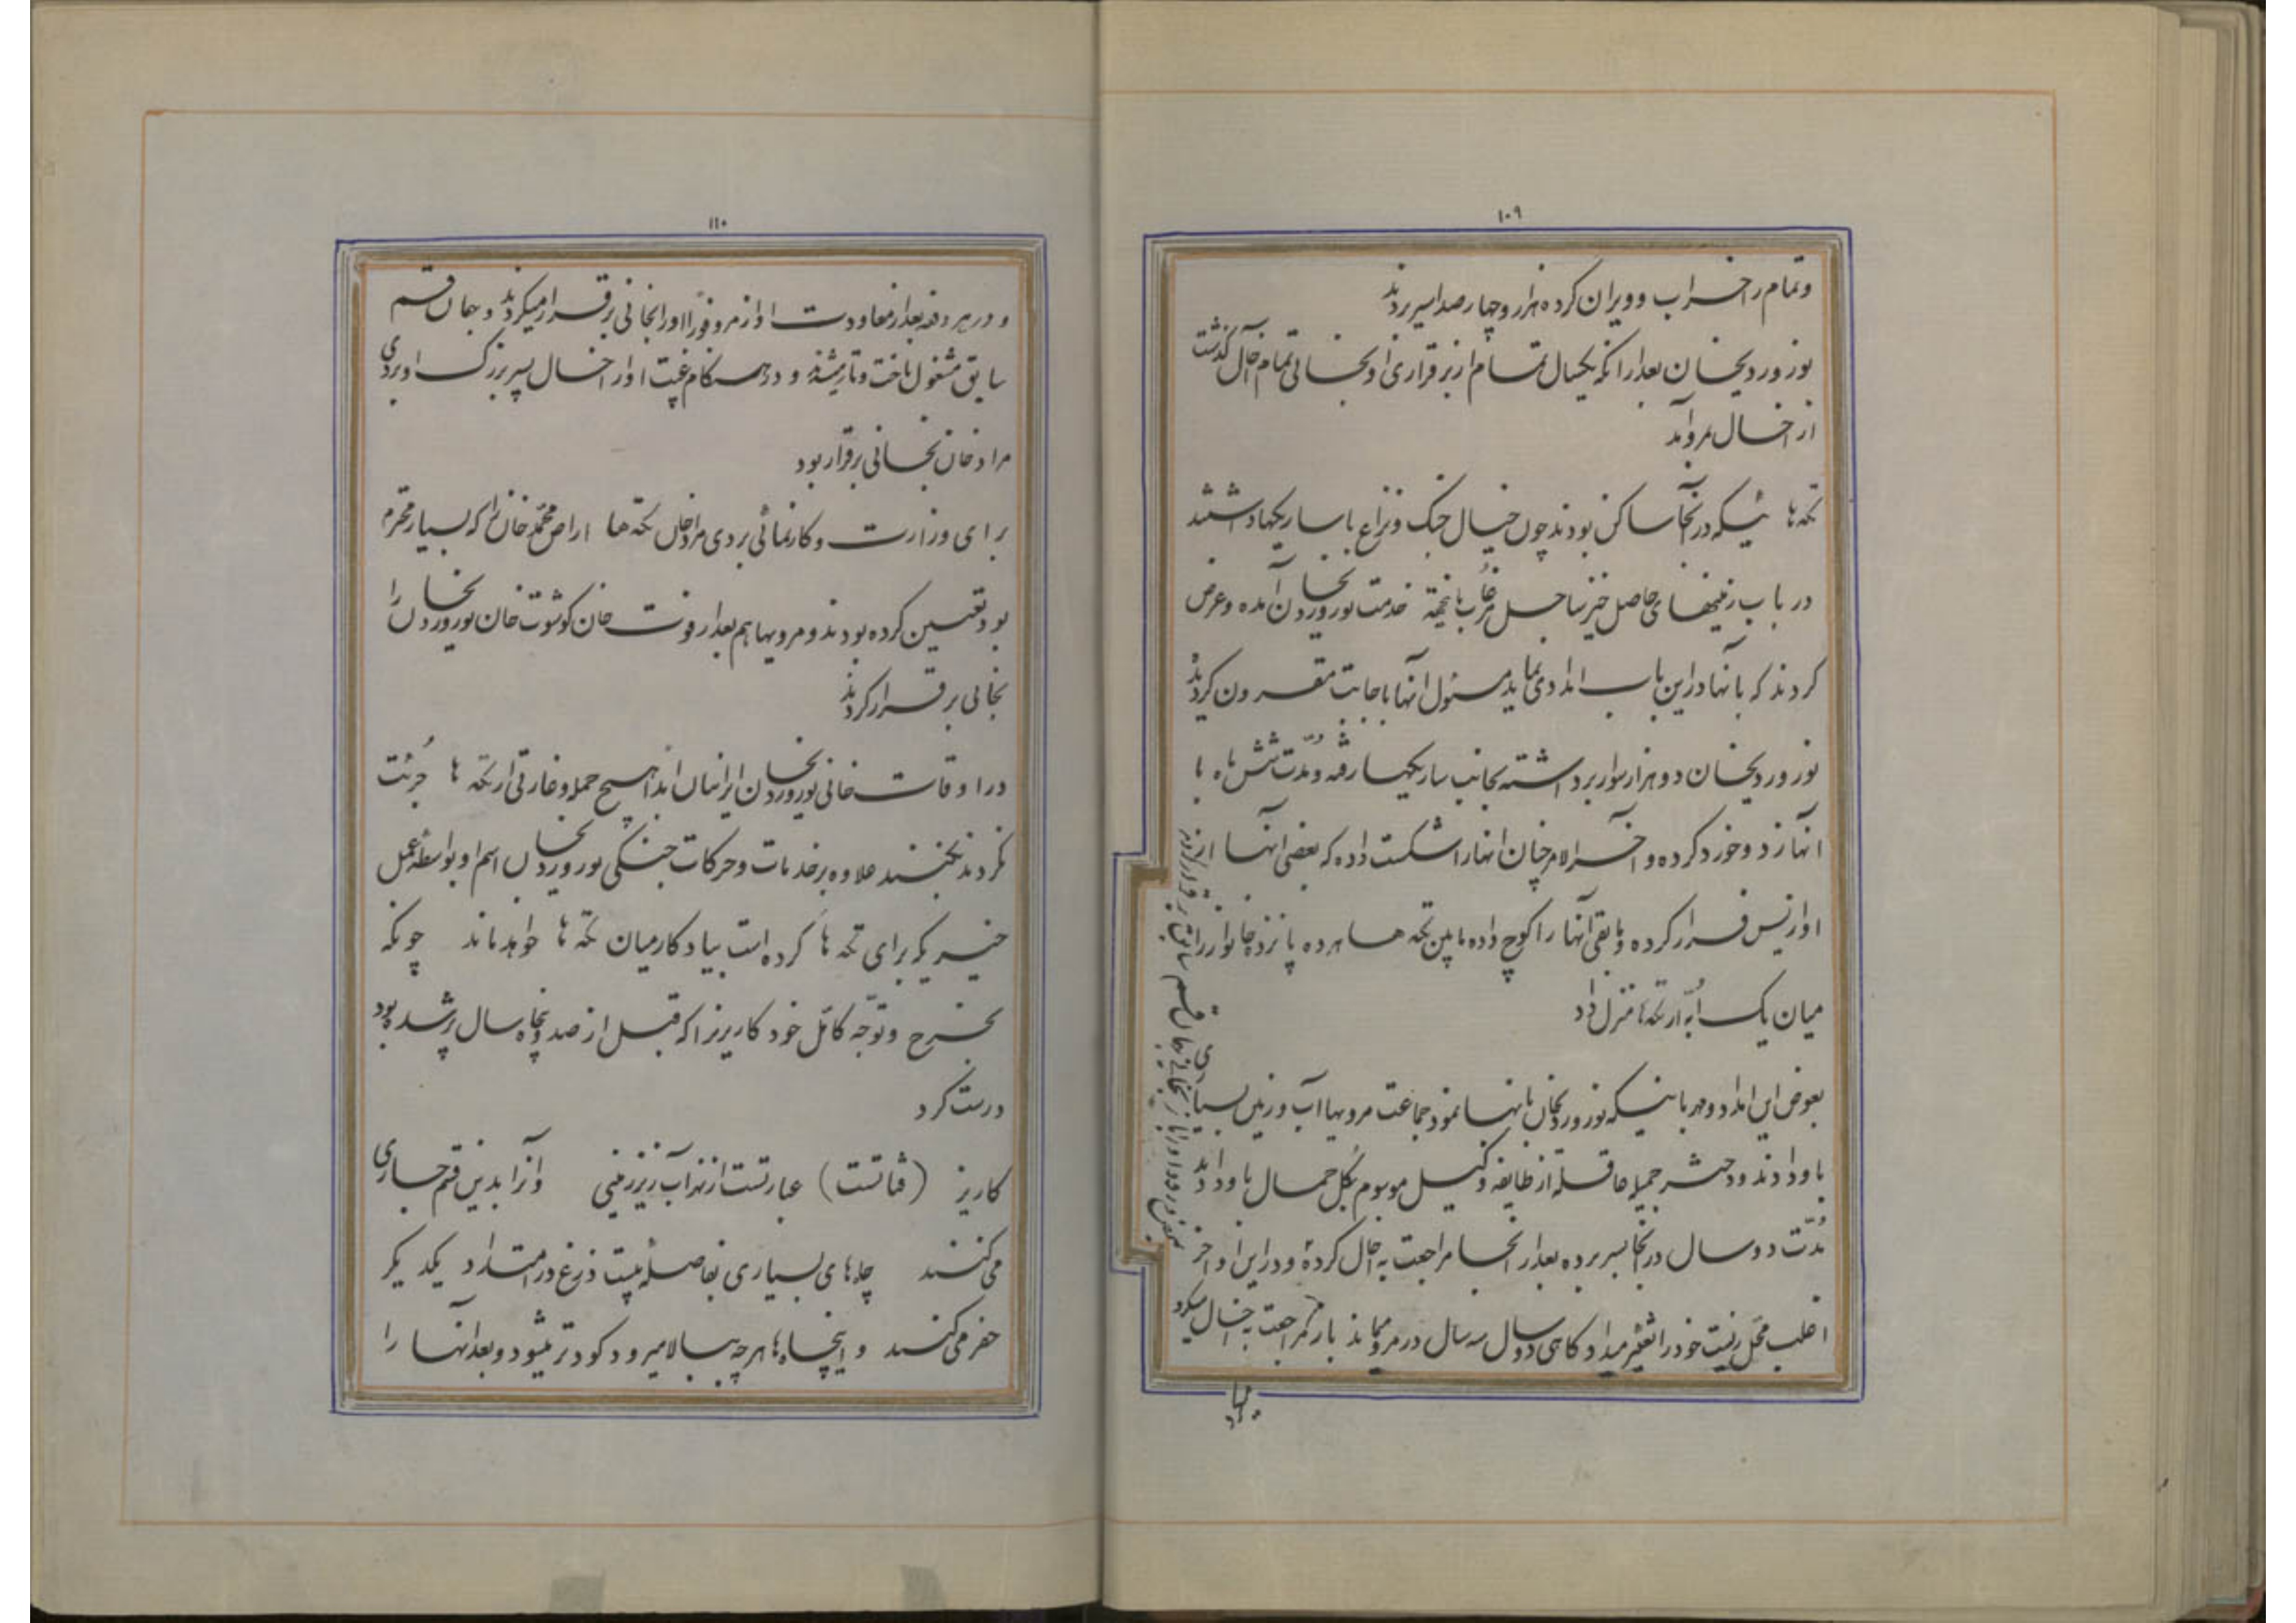 ۱۰۹
و تمام را خراب و ویران کرده هزار و چهار صد اسیر بردند
نوروردیخان بعد از آنکه یکسال تمام از برقراری او بخانی تمام آخال گذشت
از آخال بمرو آمد
تکه‌ها ئیکه در آنجا ساکن بودند چون خیال جنک و نزاع با ساریکها داشتند
در باب زمینهای حاصل خیز ساحل مرغاب باینجهة خدمت نوروردیخان آمده و عرض
کردند که بآنها در این باب امدادی نماید مسئول آنها باجابت مقرون گردید
نوروردیخان دو هزار سوار برداشته بجانب ساریکها رفته و مدّت شش ماه با
آنها زد و خورد کرده و آخر الامر چنان آنها را شکست داده که بعضی آنها از نزد
او ازپس فرار کرده و مابقی آنها را کوچ داده مابین تکه ها هر ده پانزده خانوار را
میان یک اُبه از تکه‌ها منزل داد
بعوض این امداد و مهربانیکه نوروردیخان بآنها نمود جماعت مرویها آب و زمین بسیاری
باو دادند و دختر جمیله عاقله از طایفه وکیل موسوم بگل جمال باو دادند
مدّت دو سال در آنجا بسر برده بعد از آنجا مراجعت به آخال کرده و در این اواخر
اغلب محل زیست خود را تغییر میداد کاهی دو سال سه سال در مرو میماند باز مراجعت به آخال میکرد
۱۱۰
و در هر دفعه بعد از معاودت او از مرو فوراً او را بخانی برقرار میکردند و بهمان قسم
سابق مشغول تاخت و تاز میشدند و در هنکام غیبت او از آخال پسر بزرک او بردی
مراد خان بخانی برقرار بود
برای وزارت و کارنمائی بردی مراد خان تکه ها اراض محمّد خان را که بسیار محترم
بود تعیین کرده بودند و مرویها هم بعد از فوت خان کوشوت خان نوروردیخان را
بخانی برقرار کردند
در اوقات خانی نوروردیخان ایرانیان ابداً هیچ حمله و غارتی از تکه ها جرئت
نکردند بکنند علاوه بر خدمات و حرکات جنکی نوروردیخان اسم او بواسطه عمل
خیریکه برای تکه ها کرده است بیادکار میان تکه ها خواهد ماند چونکه
بخرج و توجّه کامل خود کاریزیرا که قبل از صد و پنجاه سال پر شده بود
درست کرد
کاریز (قناتست) عبارتست از نهر آب زیر زمینی و آنرا بدین قسم جاری
می کنند چاه‌های بسیاری بفاصله بیست ذرع در امتداد یکدیکر
حفر می کنند و اینچاه‌ها هر چه ببالا میرود کودتر میشود و بعد آنها را